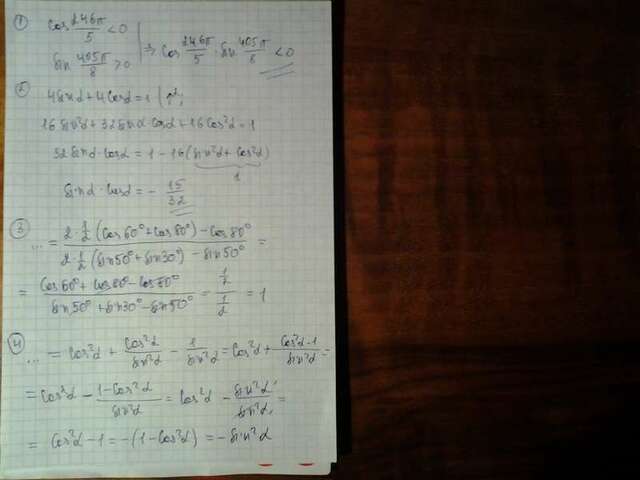 ① cos 246π/5 < 0
sin 405π/8 > 0 ⇒ cos 246π/5 · sin 405π/8 < 0
② 4sinα + 4cosα = 1 | ↑²;
16sin²α + 32sinα cosα + 16cos²α = 1
32sinα·cosα = 1 - 16(sin²α + cos²α)
1
sinα·cosα = - 15/32
③ ... = (2·1/2 (cos60° + cos80°) - cos80°)/(2·1/2 (sin50° + sin30°) - sin50°) =
= (cos60° + cos80° - cos80°)/(sin50° + sin30° - sin50°) = (1/2)/(1/2) = 1
④ ... = cos²α + cos²α/sin²α - 1/sin²α = cos²α + (cos²α - 1)/sin²α =
= cos²α - (1 - cos²α)/sin²α = cos²α - sin²α/sin²α =
= cos²α - 1 = -(1 - cos²α) = -sin²α